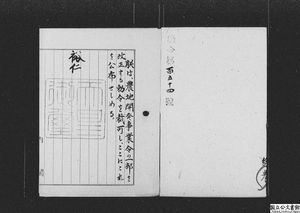 勅令第百五十四號
朕は、農地開発事業令の一部を
改正する勅令を裁可し、ここにこれ
を公布せしめる。
裕仁
天皇御璽
国立公文書館